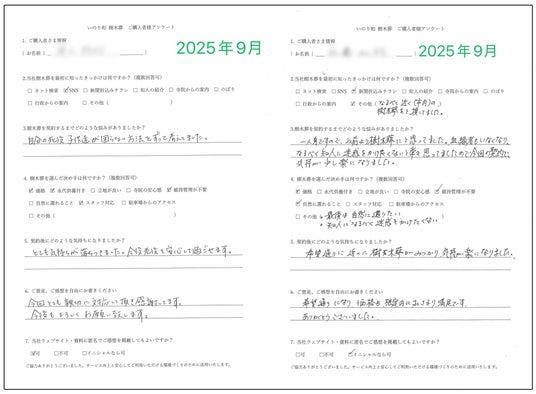 いのり和 樹木葬 ご購入者様アンケート
1. ご購入者さま情報
(お名前)
2025年9月
2.当社樹木葬を最初に知ったきっかけは何ですか？（複数回答可）
□ネット検索 ☑SNS □新聞折込みチラシ □知人の紹介 □寺院からの案内 □のぼり
□行政からの案内 □その他（ ）
3.樹木葬を契約するまでどのような悩みがありましたか？
自分の死後 子供達が困らない方法をずっと考えてました。
4. 樹木葬を選んだ決め手は何ですか？（複数回答可）
☑価格 ☑永代供養付き □立地が良い □寺院の安心感 ☑維持管理が不要
□自然に還れること ☑スタッフ対応 □駐車場からのアクセス
□その他（ ）
5. 契約後にどのような気持ちになりましたか？
とても気持ちが落ちつきました。今後老後も安心して過ごせます。
6. ご意見、ご感想を自由にお書きください
今回とても親切に対応して頂き感謝してます。
今後もよろしくお願い致します。
7. 当社ウェブサイト・資料に匿名でご感想を掲載してもよいですか？
☑可 □不可 □イニシャルなら可
ご協力ありがとうございました。サービス向上と安心してご利用いただける環境づくりのために活用いたします。
いのり和 樹木葬 ご購入者様アンケート
1. ご購入者さま情報
(お名前)
2025年9月
2.当社樹木葬を最初に知ったきっかけは何ですか？（複数回答可）
□ネット検索 □SNS ☑新聞折込みチラシ □知人の紹介 □寺院からの案内 □のぼり
□行政からの案内 ☑その他（なるべく近く
樹木葬を
3.樹木葬を契約するまでどのような悩みがありましたか？
なるべく知人に迷惑をかけたくない
気持が少し楽になりました。
4. 樹木葬を選んだ決め手は何ですか？（複数回答可）
☑価格 □永代供養付き □立地が良い □寺院の安心感 ☑維持管理が不要
☑自然に還れること □スタッフ対応 □駐車場からのアクセス
□その他 最後は自然に還りたい
知人になるべく迷惑をかけたくない
5. 契約後にどのような気持ちになりましたか？
希望通りに近くに樹木葬がみつかり 気持が楽になりました。
6. ご意見、ご感想を自由にお書きください
希望通りになり 価格も想定内におさまり満足です
ありがとうございました。
7. 当社ウェブサイト・資料に匿名でご感想を掲載してもよいですか？
□可 □不可 ☑イニシャルなら可
ご協力ありがとうございました。サービス向上と安心してご利用いただける環境づくりのために活用いたします。